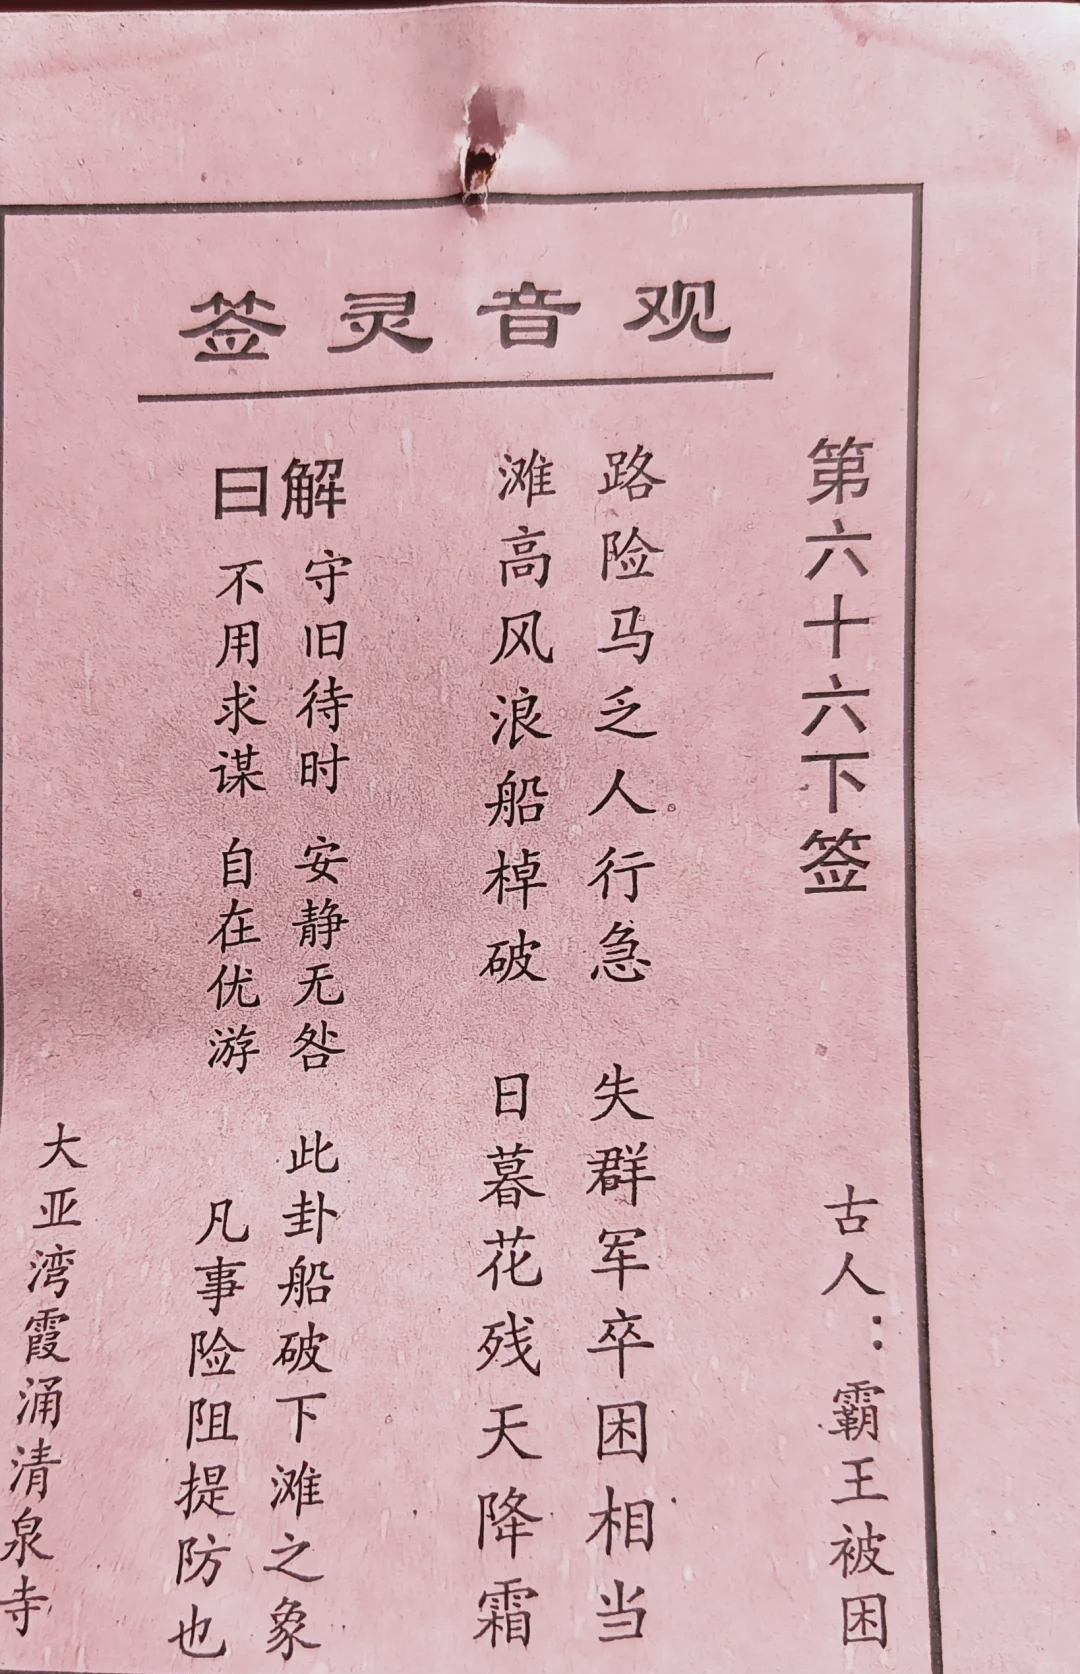 观音灵签
第六十六下签 古人：霸王被困
路险马乏人行急 失群军卒困相当
滩高风浪船棹破 日暮花残天降霜
解曰
守旧待时 安静无咎 此卦船破下滩之象
不用求谋 自在优游 凡事险阻提防也
大亚湾霞涌清泉寺